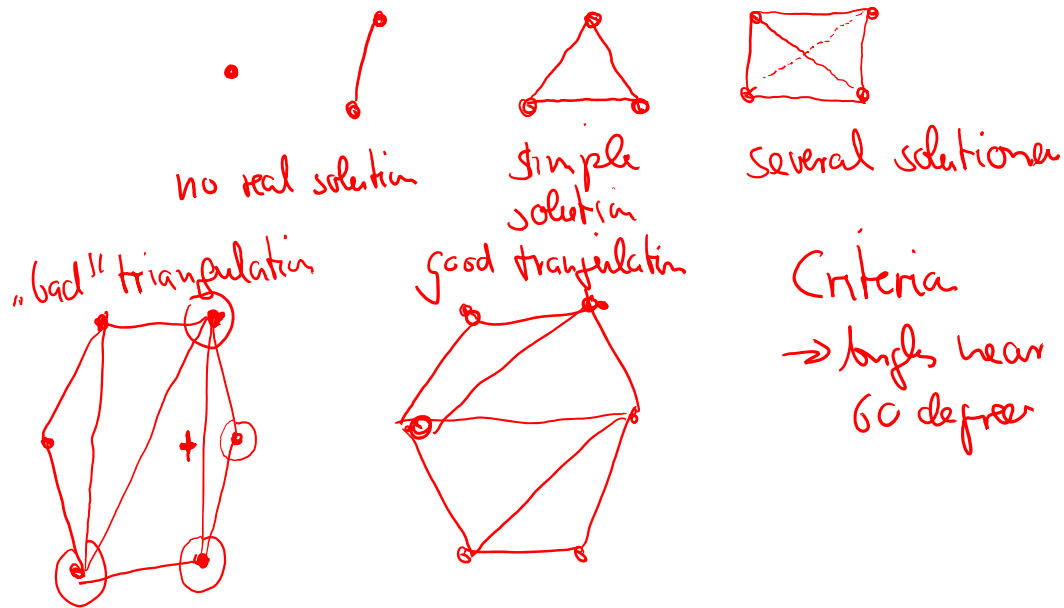 no real solution
simple
solution
several solutionen
„bad" triangulation
good trangulation
Criteria
→ Angles near
60 degrees